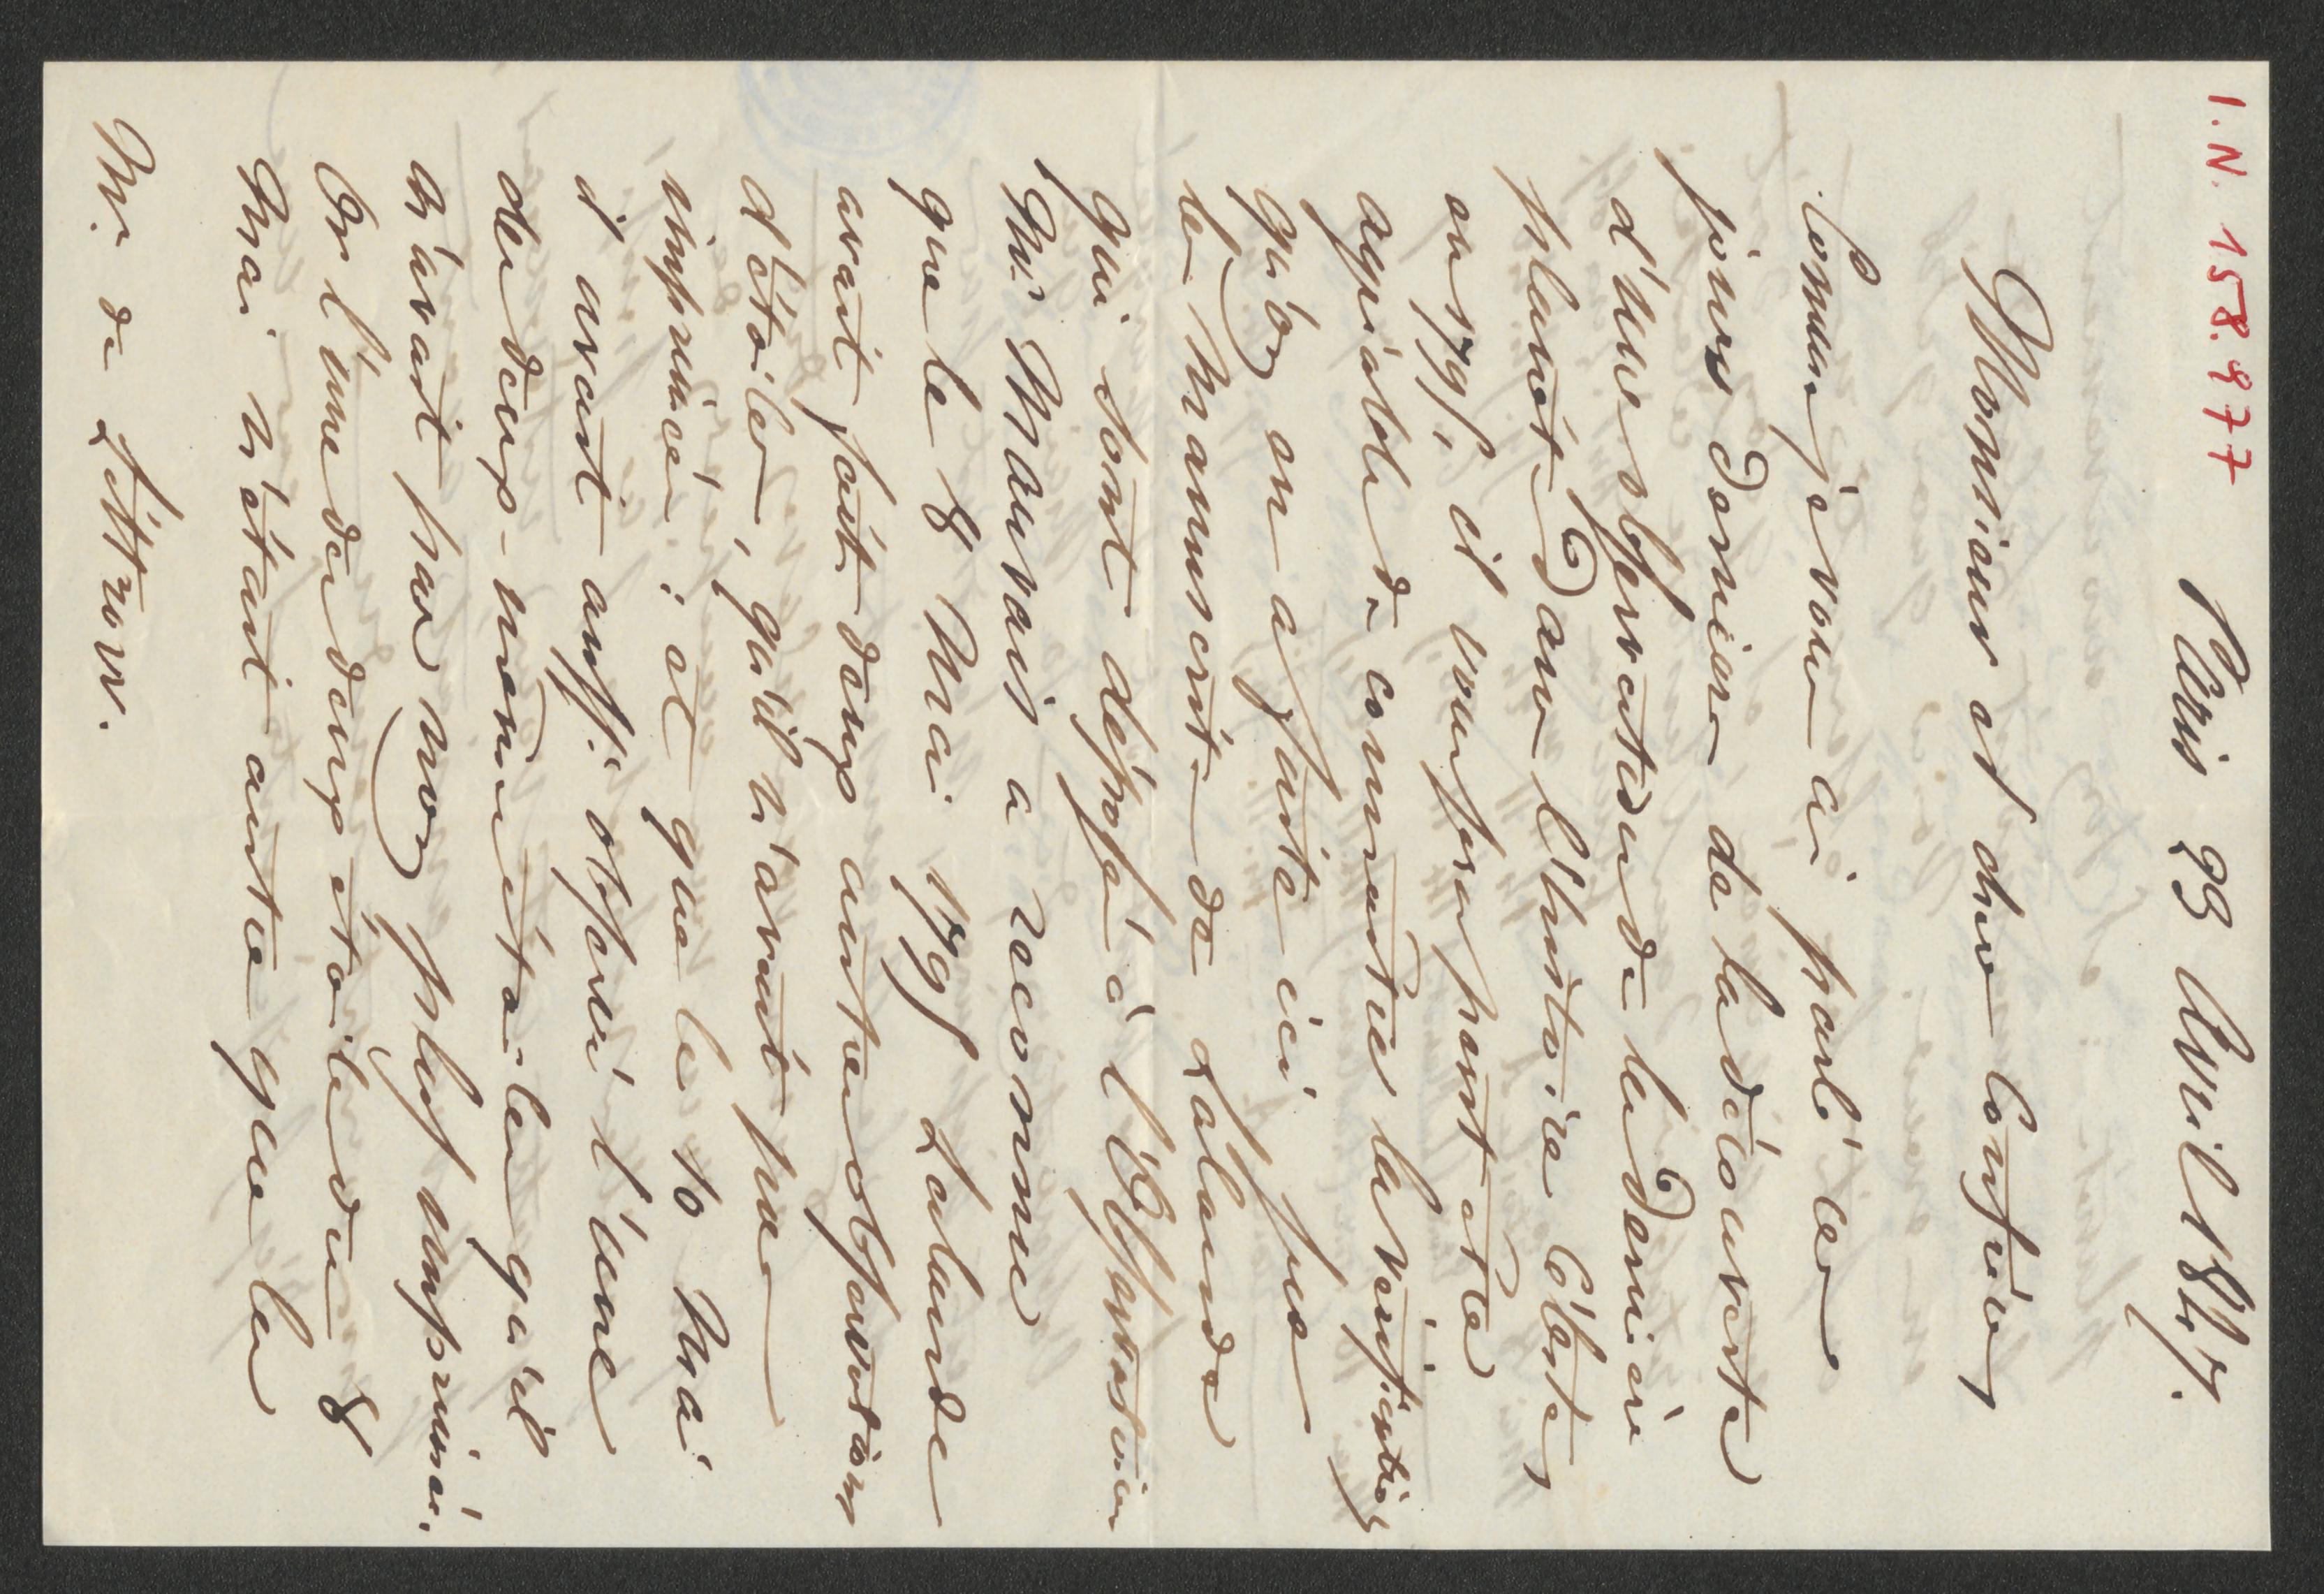 I.N. 158.977
Paris 23 Avril 1847.
Monsieur et cher Confrère,
Comme je vous ai parlé ces
jours derniers de la découverte
d'une observation de la dernière
planète dans l'histoire Céleste,
en 1795, il vous sera peut etre
agréable de connaitre la vérification
qu'on en a faite ici sur
les manuscrits de Lalande
qui sont déposés à l'Observatoire
Mr. Mauvais a reconnu
que le 8 Mai 1795 Lalande
avait fait deux autres observations
d'étoiles, qu'il n'avait pas
imprimées; et que le 10 Mai
il avait aussi observé l'une
des deux mêmes étoiles qu'il
n'avait pas non plus imprimée.
Or l'une des deux étoiles du 8
Mai n'était autre que la
Mr. de Littrow.